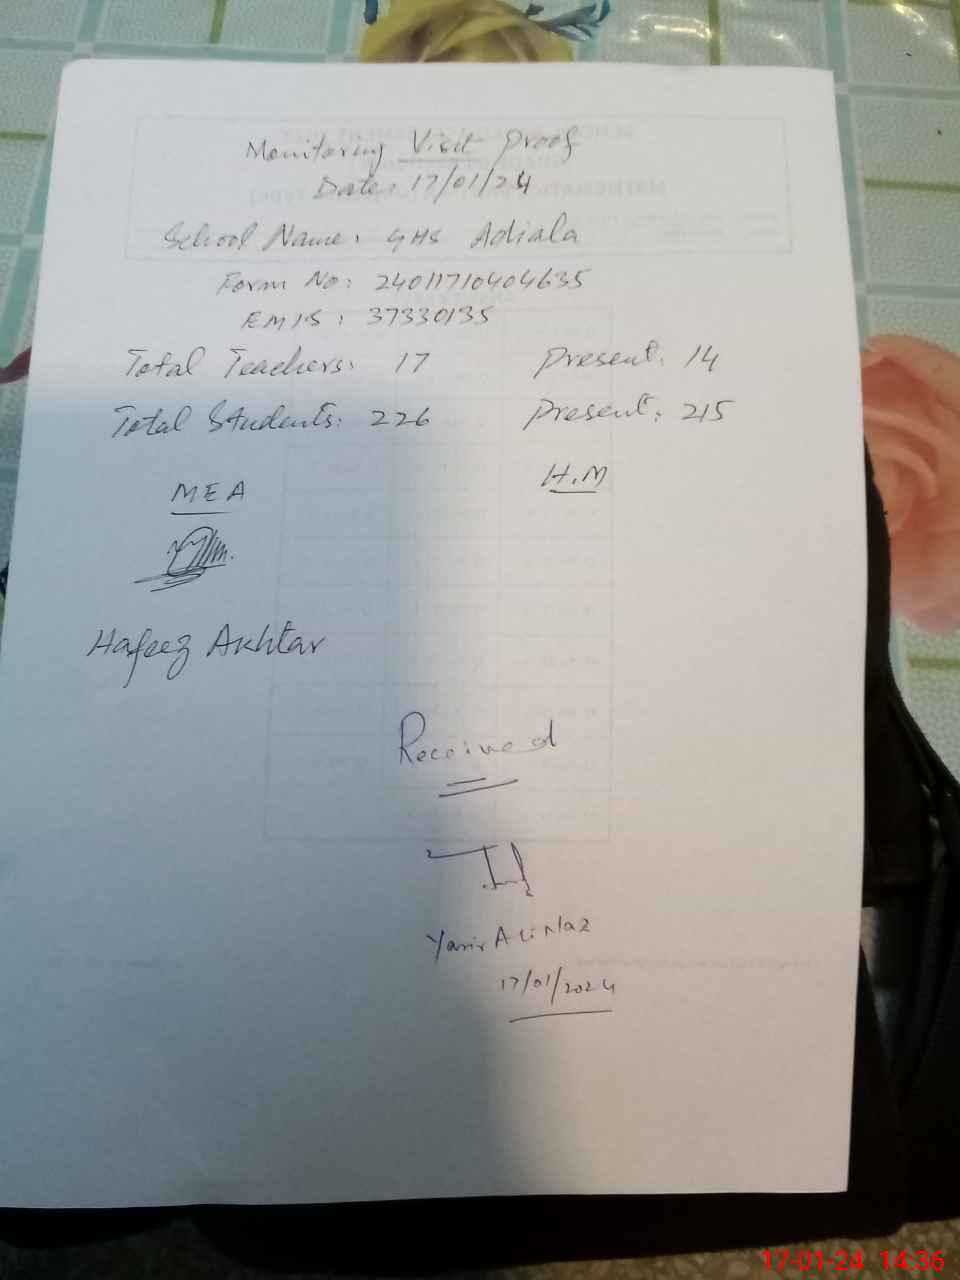 Monitoring Visit Proof
Date: 17/01/24
School Name: GHS Adiala
Form No: 24011710404635
EMIS: 37330135
Total Teachers: 17 Present: 14
Total Students: 226 Present: 215
MEA H.M
Hafeez Akhtar
Received
Yasir Ali Naz
17/01/2024
17-01-24 14:36